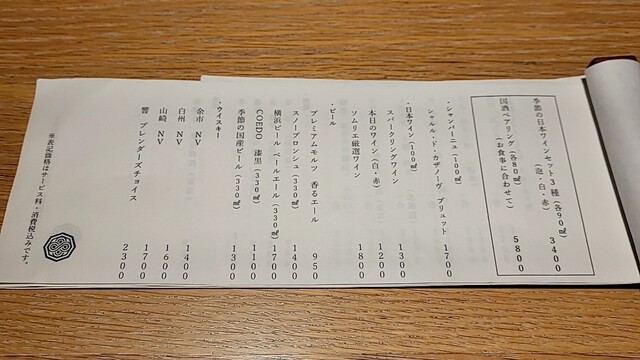 季節の日本ワインセット3種(各90㎖)
(泡・白・赤) 3400
国酒ペアリング(各80㎖)
(お食事に合わせて) 5800
・シャンパーニュ(100㎖)
シャルル・ド・カザノーヴ ブリュット 1700
・日本ワイン(100㎖)
スパークリングワイン 1300
本日のワイン(白・赤) 1200
ソムリエ厳選ワイン 1800
・ビール
プレミアムモルツ 香るエール 950
スノーブロンシュ(330㎖) 1400
横浜ビール ペールエール(330㎖) 1700
COEDO 漆黒(330㎖) 1100
季節の国産ビール(330㎖) 1300
・ウイスキー
余市 NV 1400
白州 NV 1600
山崎 NV 1700
響 ブレンダーズチョイス 2300
※表記価格はサービス料・消費税込みです。